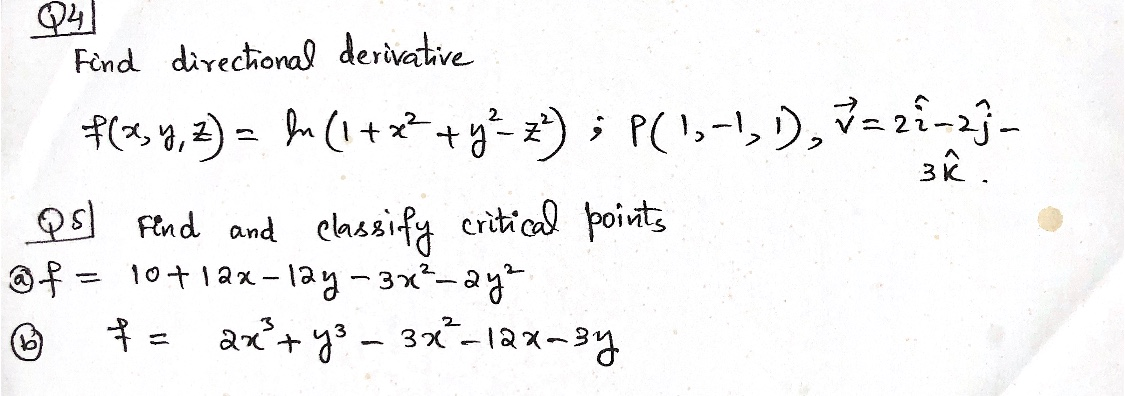 Q4
Find directional derivative
f(x, y, z) = ln (1 + x² + y² - z²) ; P(1, -1, 1), v⃗ = 2î - 2ĵ -
3k̂ .
Q5 Find and classify critical points
ⓐ f = 10 + 12x - 12y - 3x² - 2y²
ⓑ f = 2x³ + y³ - 3x² - 12x - 3y